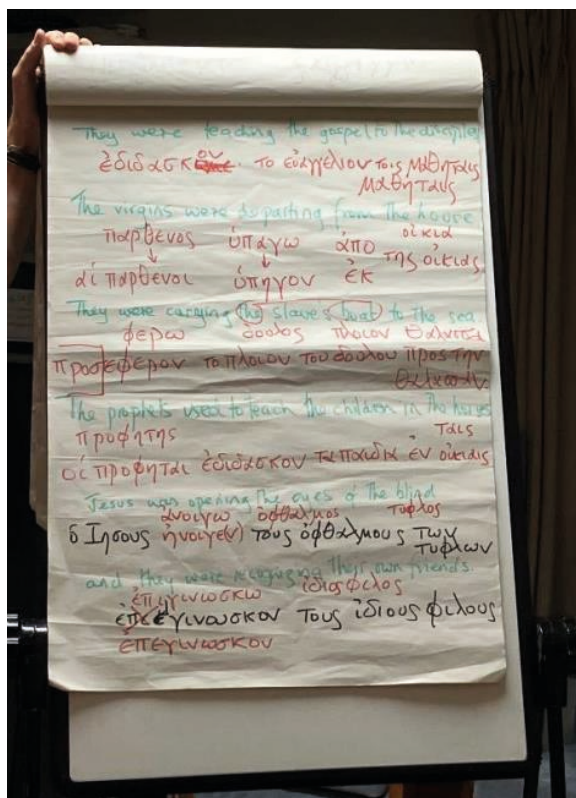 They were teaching the gospel to the disciples
ἐδιδασκον το εὐαγγελιον τοις μαθηταις
μαθηταις
The virgins were departing from the house
παρθενος ὑπαγω ἀπο οἰκια
αἱ παρθενοι ὑπηγον ἐκ της οἰκιας
They were carrying the slave's boat to the sea
φερω δουλος πλοιον θαλασσα
προσεφερον το πλοιον του δουλου προς την
θαλασσαν
The prophets used to teach the children in the houses
προφητης ταις
οἱ προφηται ἐδιδασκον τα παιδια ἐν οἰκιαις
Jesus was opening the eyes of the blind
ἀνοιγω ὀφθαλμος τυφλος
ὁ Ιησους ἠνοιγε(ν) τους ὀφθαλμους των
τυφλων
and they were recognising their own friends.
ἐπιγινωσκω ἰδιος φιλος
ἐγινωσκον τους ἰδιους φιλους
ἐπεγινωσκον